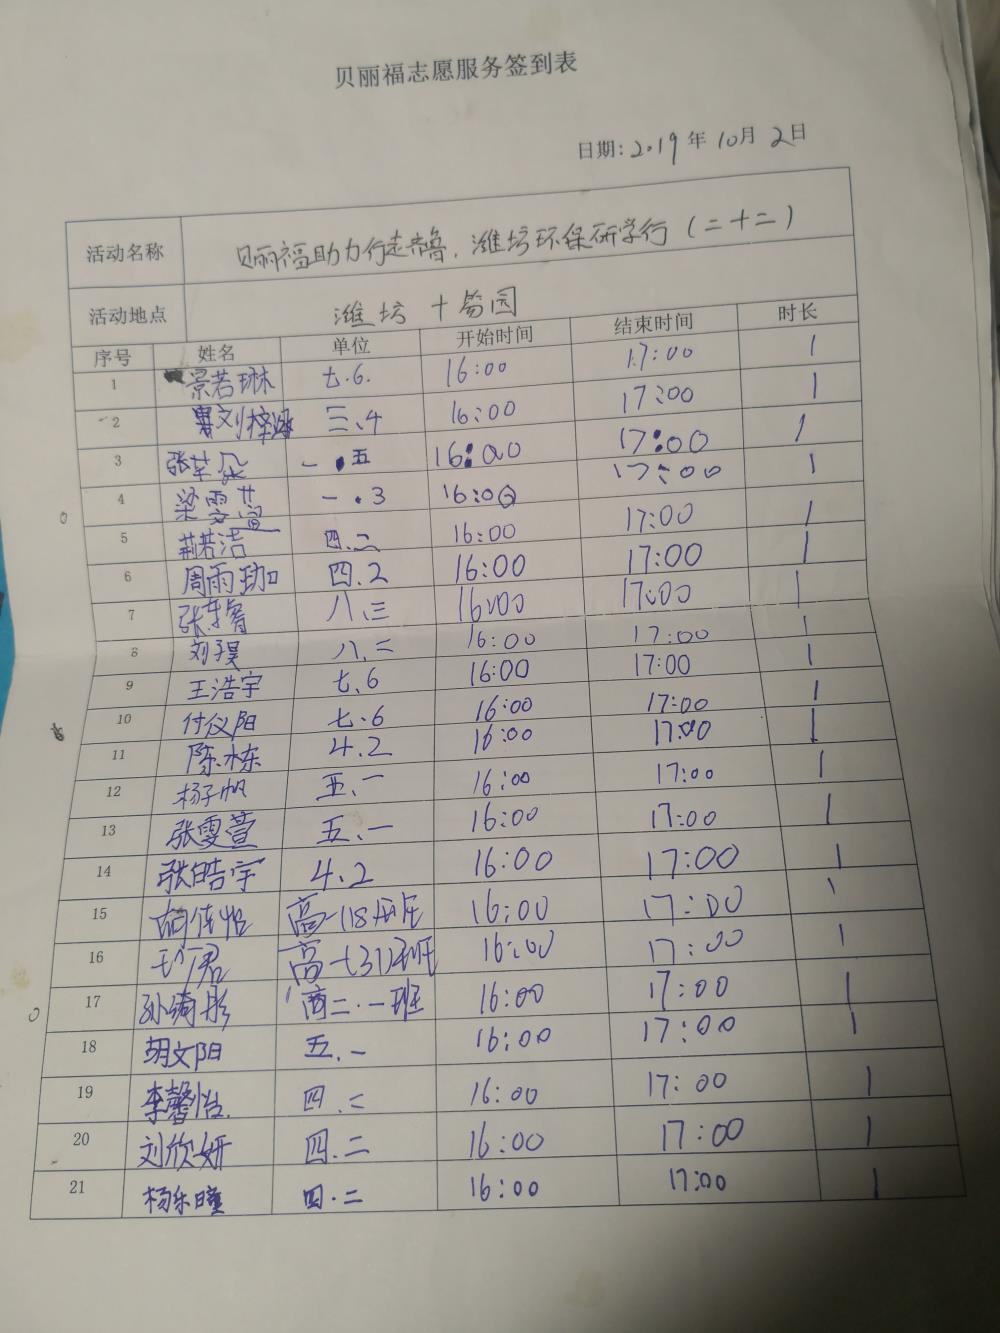 贝丽福志愿服务签到表
日期:2019年10月2日
活动名称 贝丽福助力行走齐鲁,潍坊环保研学行(二十二)
活动地点 潍坊十笏园
序号 姓名 单位 开始时间 结束时间 时长
1 景若琳 七.6. 16:00 17:00 1
2 刘梓涵 三、4 16:00 17:00 1
3 张芊朵 一.五 16:00 17:00 1
4 梁雯萱 一.3 16:00 17:00 1
5 荆若洁 四.二 16:00 17:00 1
6 周雨珈 四.2 16:00 17:00 1
7 八、三 16:00 17:00 1
8 刘子昊 八.三 16:00 17:00 1
9 王浩宇 七、6 16:00 17:00 1
10 付仪阳 七.6 16:00 17:00 1
11 陈栋 4.2 16:00 17:00 1
12 杨子帆 五.一 16:00 17:00 1
13 张雯萱 五.一 16:00 17:00 1
14 张皓宇 4.2 16:00 17:00 1
15 高一 16:00 17:00 1
16 高一(31)班 16:00 17:00 1
17 孙绮彤 高二.一班 16:00 17:00 1
18 胡文阳 五.一 16:00 17:00 1
19 李馨怡. 四.二 16:00 17:00 1
20 刘欣妍 四.二 16:00 17:00 1
21 杨乐瞳 四.二 16:00 17:00 1